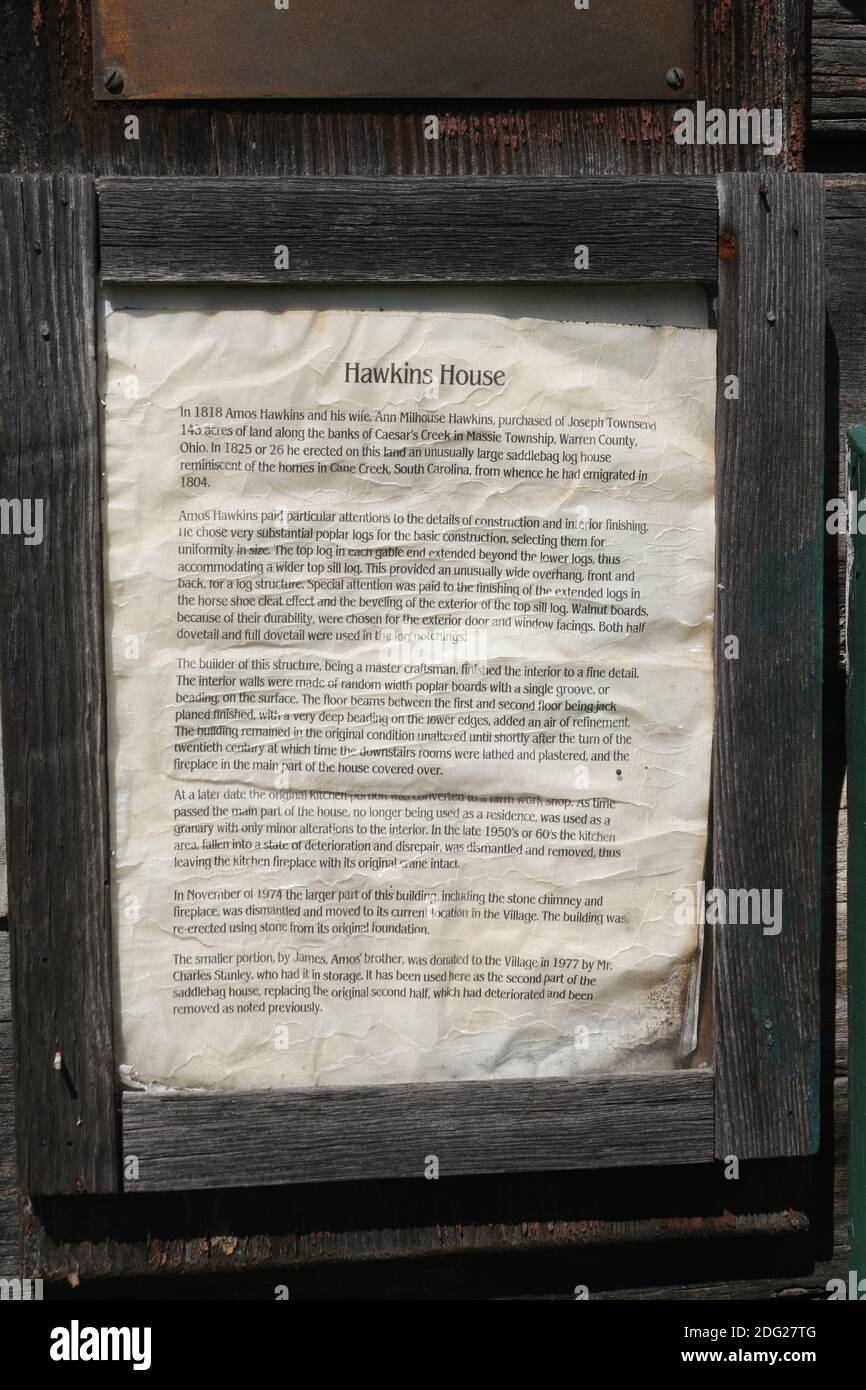 Hawkins House
In 1818 Amos Hawkins and his wife, Ann Milhouse Hawkins, purchased of Joseph Townsend
143 acres of land along the banks of Caesar's Creek in Massie Township, Warren County,
Ohio. In 1825 or 26 he erected on this land an unusually large saddlebag log house
reminiscent of the homes in Cane Creek, South Carolina, from whence he had emigrated in
1804.
Amos Hawkins paid particular attentions to the details of construction and interior finishing.
He chose very substantial poplar logs for the basic construction, selecting them for
uniformity in size. The top log in each gable end extended beyond the lower logs, thus
accommodating a wider top sill log. This provided an unusually wide overhang, front and
back, for a log structure. Special attention was paid to the finishing of the extended logs in
the horse shoe cleat effect and the beveling of the exterior of the top sill log. Walnut boards,
because of their durability, were chosen for the exterior door and window facings. Both half
dovetail and full dovetail were used in the log notchings.
The builder of this structure, being a master craftsman, finished the interior to a fine detail.
The interior walls were made of random width poplar boards with a single groove, or
beading, on the surface. The floor beams between the first and second floor being jack
planed finished, with a very deep beading on the lower edges, added an air of refinement.
The building remained in the original condition unaltered until shortly after the turn of the
twentieth century at which time the downstairs rooms were lathed and plastered, and the
fireplace in the main part of the house covered over.
At a later date the original kitchen portion was converted to a farm work shop. As time
passed the main part of the house, no longer being used as a residence, was used as a
granary with only minor alterations to the interior. In the late 1950's or 60's the kitchen
area, fallen into a state of deterioration and disrepair, was dismantled and removed, thus
leaving the kitchen fireplace with its original crane intact.
In November of 1974 the larger part of this building, including the stone chimney and
fireplace, was dismantled and moved to its current location in the Village. The building was
re-erected using stone from its original foundation.
The smaller portion, by James, Amos' brother, was donated to the Village in 1977 by Mr.
Charles Stanley, who had it in storage. It has been used here as the second part of the
saddlebag house, replacing the original second half, which had deteriorated and been
removed as noted previously.
alamy
Image ID: 2DG27TG
www.alamy.com